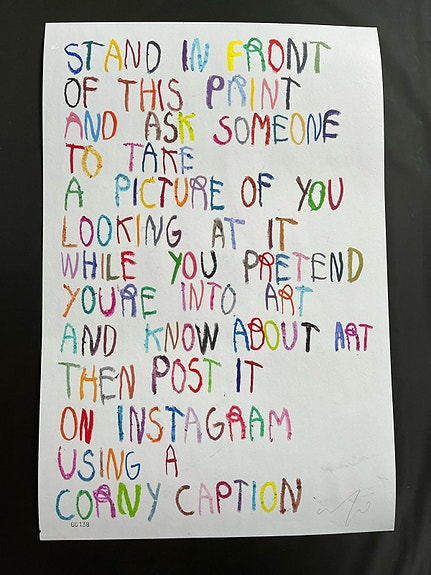 STAND IN FRONT
OF THIS PRINT
AND ASK SOMEONE
TO TAKE
A PICTURE OF YOU
LOOKING AT IT
WHILE YOU PRETEND
YOURE INTO ART
AND KNOW ABOUT ART
THEN POST IT
ON INSTAGRAM
USING A
CORNY CAPTION
00138